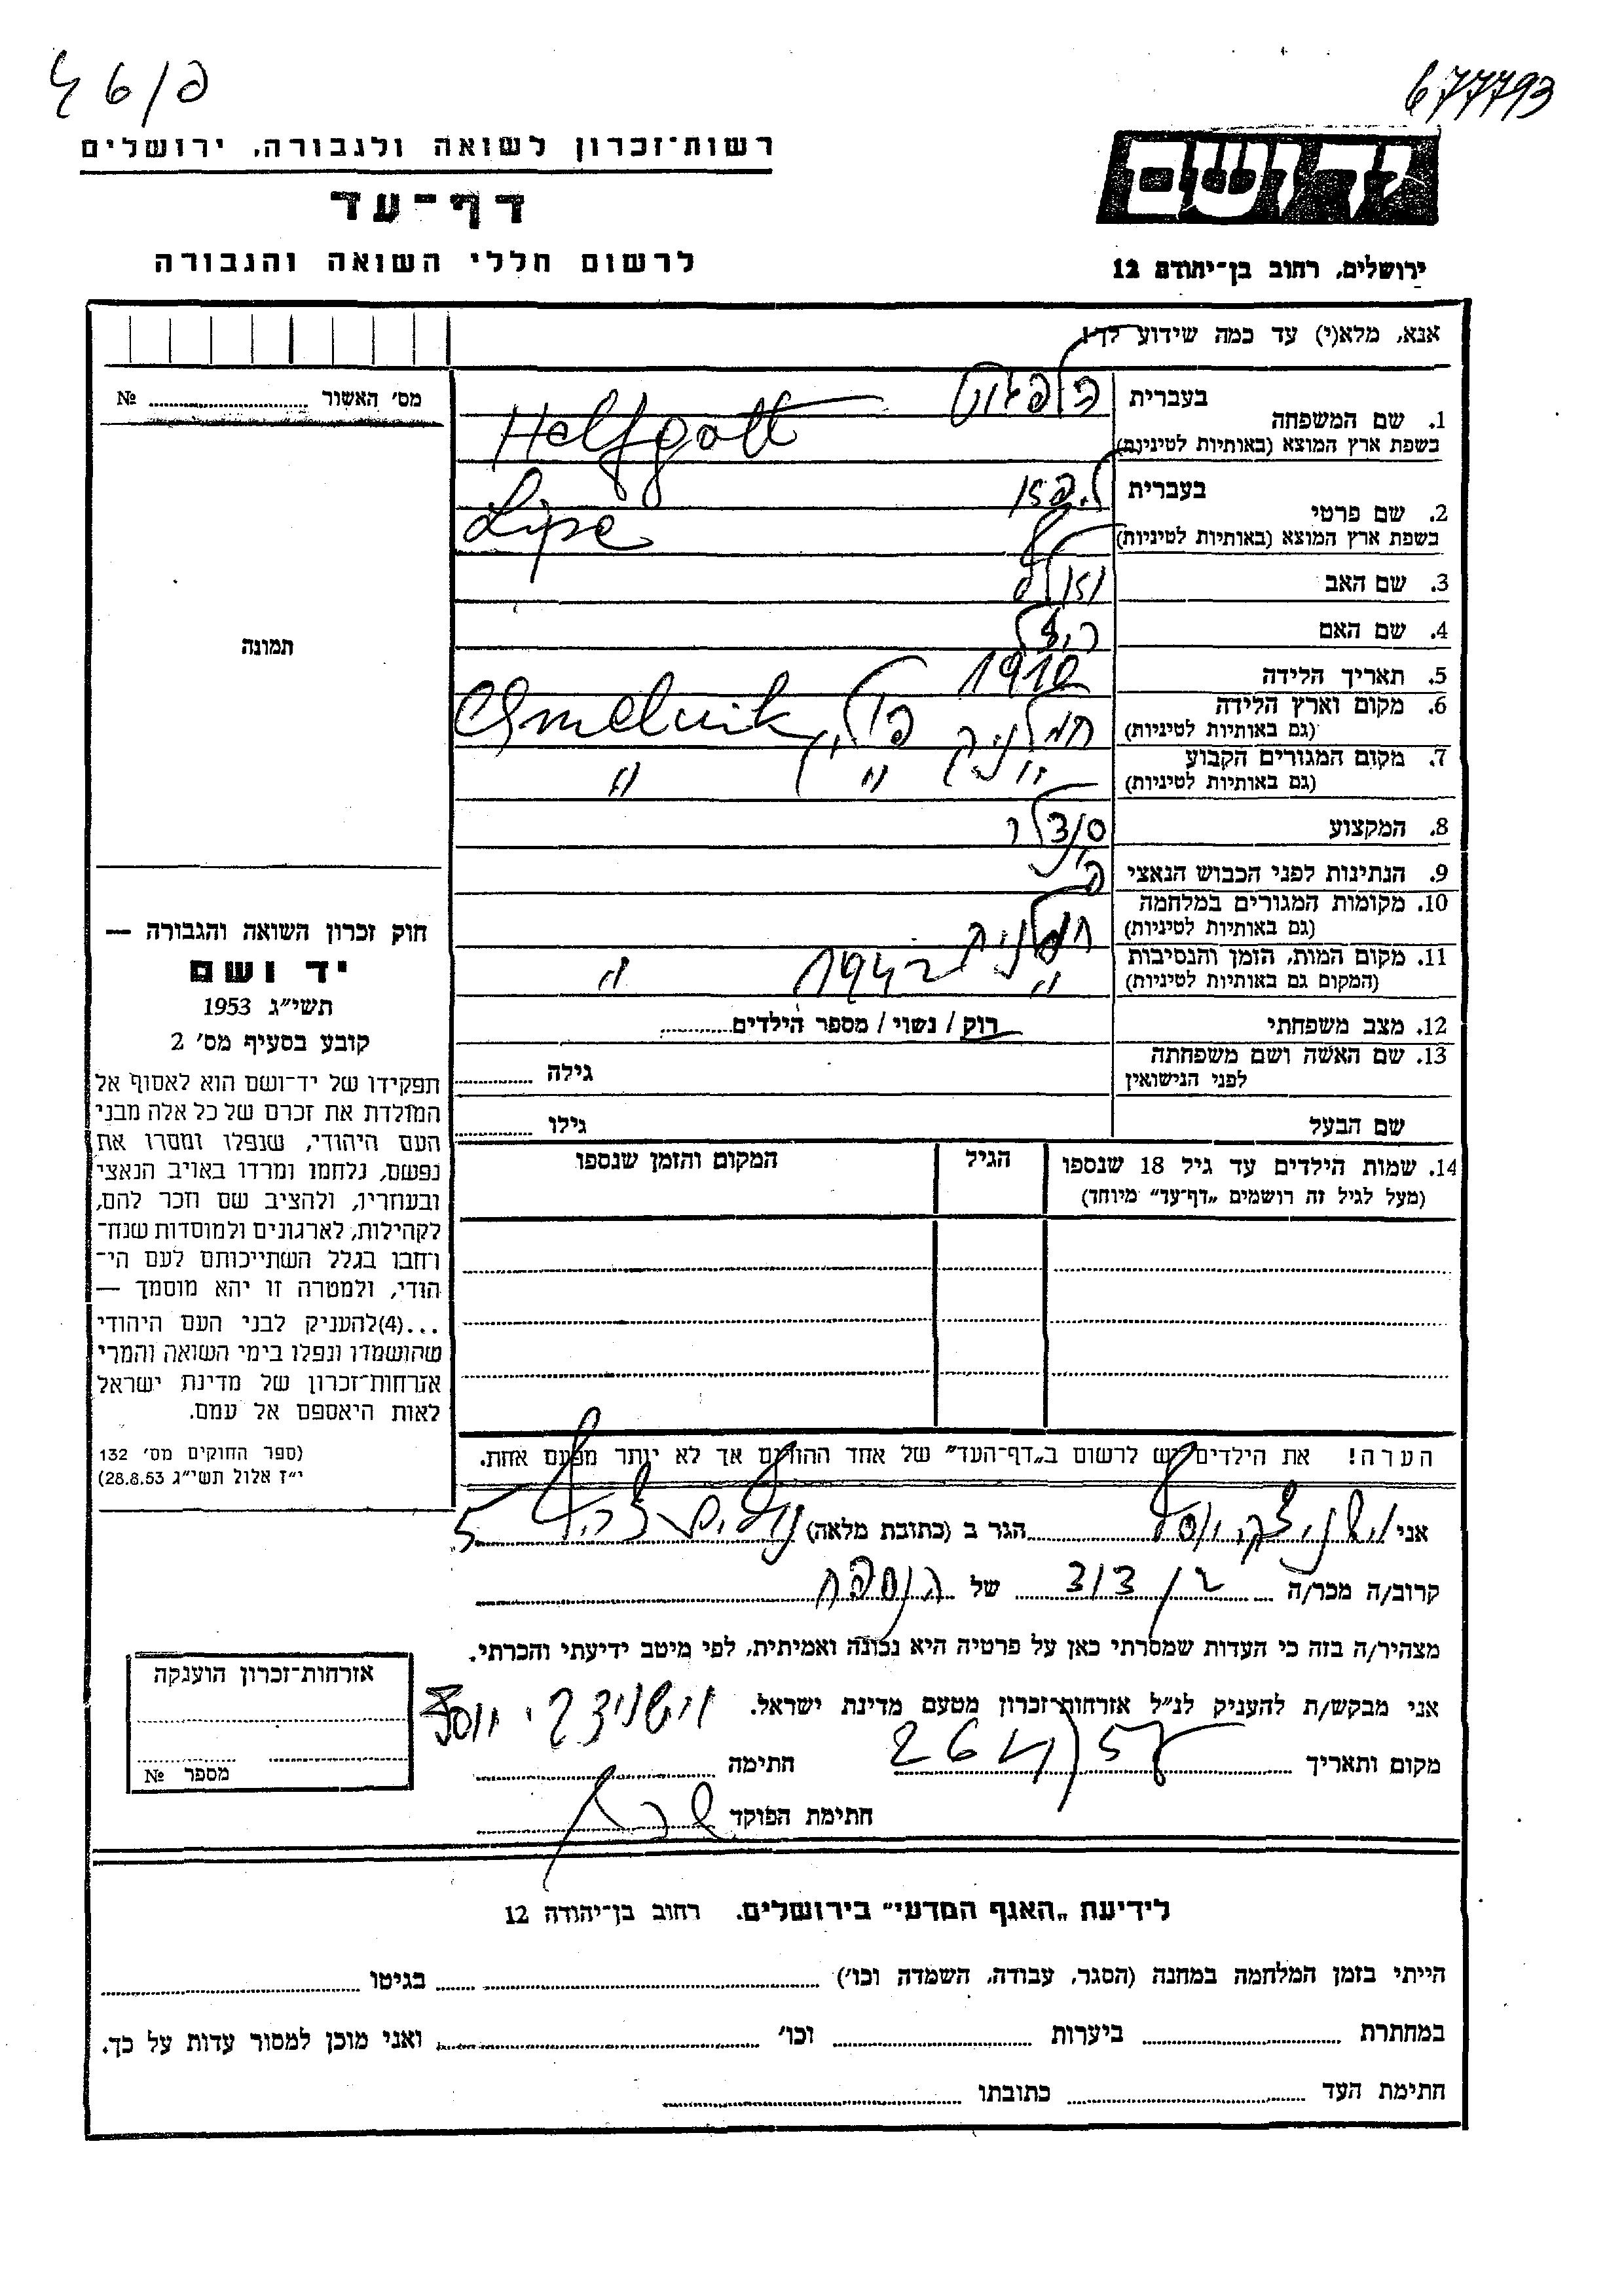 46/פ
677793
רשות־זכרון לשואה ולגבורה, ירושלים
דף־עד
לרשום חללי השואה והגבורה
יד ושם
ירושלים, רחוב בן־יהודה 12
אנא, מלא(י) עד כמה שידוע לך!
מס׳ האשור №
1. שם המשפחה
בעברית הלפגוט
בשפת ארץ המוצא (באותיות לטיניות) Helfgott
2. שם פרטי
בעברית
בשפת ארץ המוצא (באותיות לטיניות) Lipe
3. שם האב
4. שם האם
5. תאריך הלידה 1910
6. מקום וארץ הלידה
(גם באותיות לטיניות) חמלניק פולין Chmelnik
7. מקום המגורים הקבוע
(גם באותיות לטיניות) " " "
8. המקצוע סנדלר
9. הנתינות לפני הכבוש הנאצי
10. מקומות המגורים במלחמה
(גם באותיות לטיניות) חמלניק
11. מקום המות, הזמן והנסיבות
(המקום גם באותיות לטיניות) " 1942 "
12. מצב משפחתי רוק / נשוי / מספר הילדים
13. שם האשה ושם משפחתה
לפני הנישואין גילה
שם הבעל גילו
14. שמות הילדים עד גיל 18 שנספו
(מעל לגיל זה רושמים „דף־עד״ מיוחד)
הגיל
המקום והזמן שנספו
תמונה
חוק זכרון השואה והגבורה —
יד ושם
תשי״ג 1953
קובע בסעיף מס׳ 2
תפקידו של יד־ושם הוא לאסוף אל
המולדת את זכרם של כל אלה מבני
העם היהודי, שנפלו ומסרו את
נפשם, נלחמו ומרדו באויב הנאצי
ובעוזריו, ולהציב שם וזכר להם,
לקהילות, לארגונים ולמוסדות שנח־
רחבו בגלל השתייכותם לעם הי־
הודי, ולמטרה זו יהא מוסמך —
...(4)להעניק לבני העם היהודי
שהושמדו ונפלו בימי השואה והמרי
אזרחות־זכרון של מדינת ישראל
לאות היאספם אל עמם.
(ספר החוקים מס׳ 132
י״ז אלול תשי״ג 28.8.53)
הערה! את הילדים יש לרשום ב„דף־העד״ של אחד ההורים אך לא יותר מפעם אחת.
אני יוסף הגר ב (כתובת מלאה) 5
קרוב/ה מכר/ה בן דוד של הנספה
מצהיר/ה בזה כי העדות שמסרתי כאן על פרטיה היא נכונה ואמיתית, לפי מיטב ידיעתי והכרתי.
אני מבקש/ת להעניק לנ״ל אזרחות־זכרון מטעם מדינת ישראל. יוסף
מקום ותאריך חתימה
חתימת הפוקד
אזרחות־זכרון הוענקה
מספר №
לידיעת „האגף המדעי״ בירושלים. רחוב בן־יהודה 12
הייתי בזמן המלחמה במחנה (הסגר, עבודה, השמדה וכו׳) בגיטו
במחתרת ביערות וכו׳ ואני מוכן למסור עדות על כך.
חתימת העד כתובתו